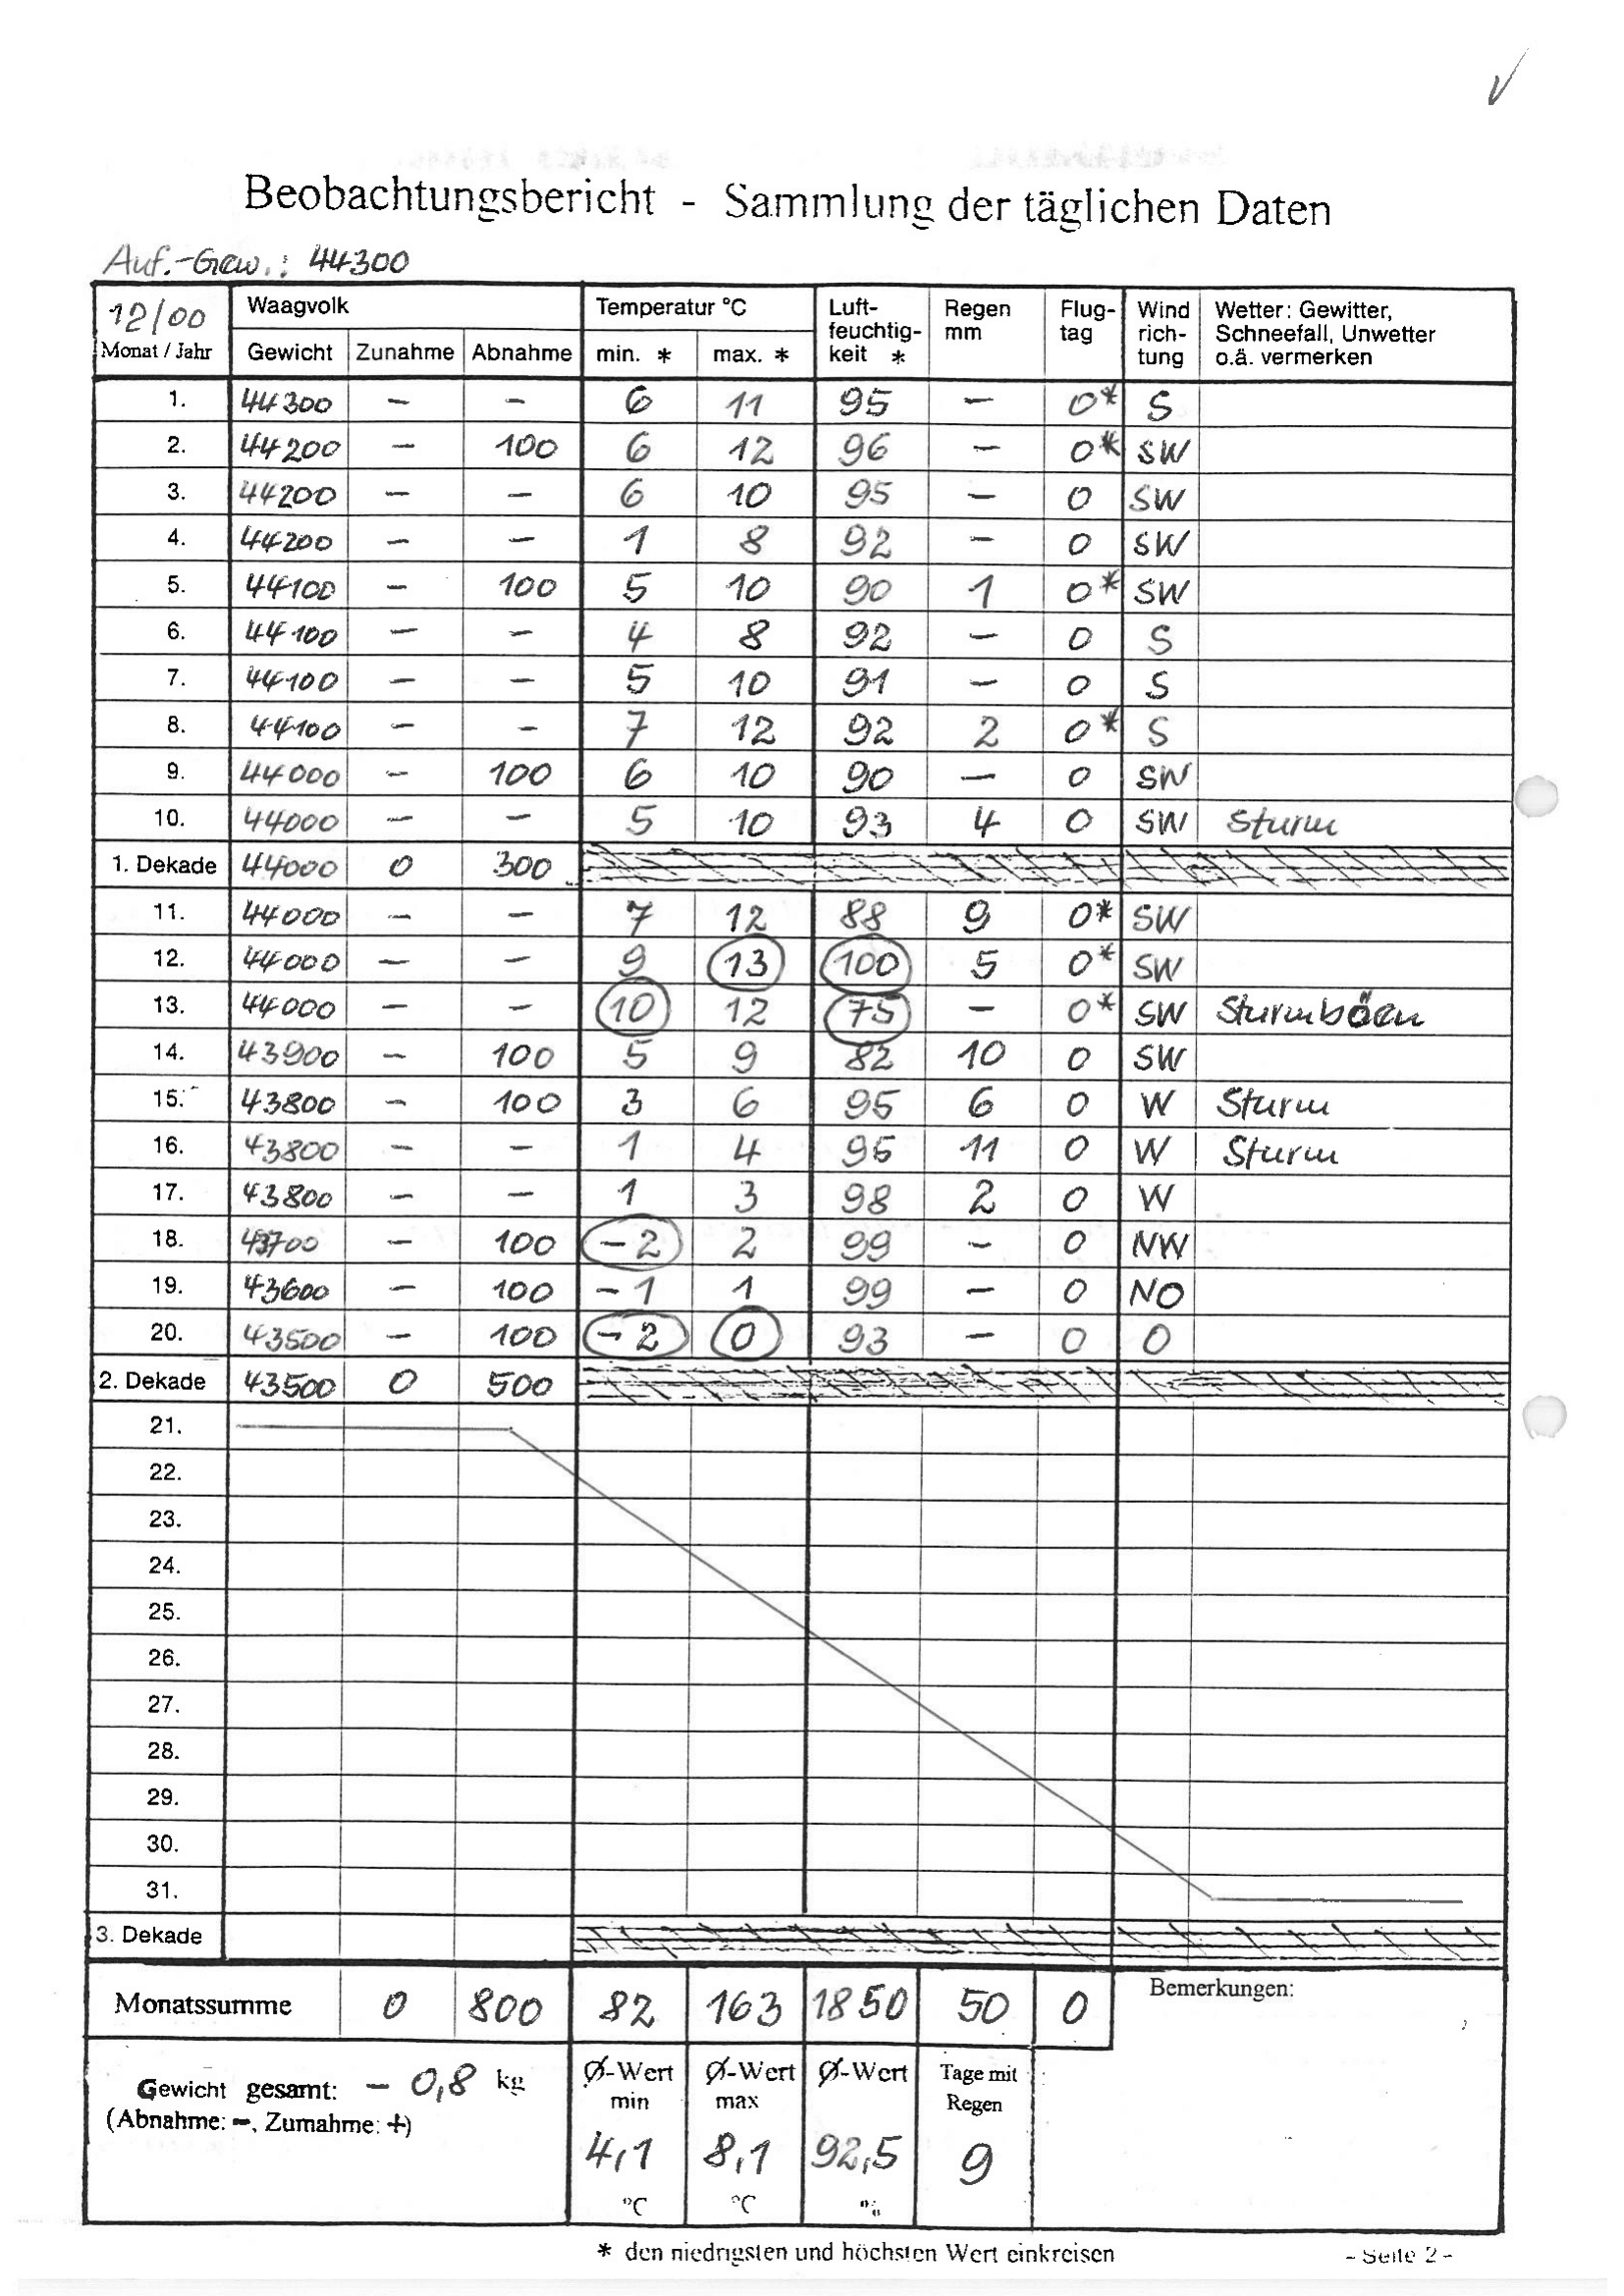 Beobachtungsbericht - Sammlung der täglichen Daten
Auf.-Gew.: 44300
12/00 Monat / Jahr Waagvolk Temperatur °C Luft-feuchtig-keit * Regen mm Flug-tag Wind rich-tung Wetter: Gewitter, Schneefall, Unwetter o.ä. vermerken
Gewicht Zunahme Abnahme min. * max. *
1. 44300 – – 6 11 95 – 0* S
2. 44200 – 100 6 12 96 – 0* SW
3. 44200 – – 6 10 95 – 0 SW
4. 44200 – – 1 8 92 – 0 SW
5. 44100 – 100 5 10 90 1 0* SW
6. 44100 – – 4 8 92 – 0 S
7. 44100 – – 5 10 91 – 0 S
8. 44100 – – 7 12 92 2 0* S
9. 44000 – 100 6 10 90 – 0 SW
10. 44000 – – 5 10 93 4 0 SW Sturm
1. Dekade 44000 0 300
11. 44000 – – 7 12 88 9 0* SW
12. 44000 – – 9 13 100 5 0* SW
13. 44000 – – 10 12 75 – 0* SW Sturmböen
14. 43900 – 100 5 9 82 10 0 SW
15. 43800 – 100 3 6 95 6 0 W Sturm
16. 43800 – – 1 4 95 11 0 W Sturm
17. 43800 – – 1 3 98 2 0 W
18. 43700 – 100 –2 2 99 – 0 NW
19. 43600 – 100 –1 1 99 – 0 NO
20. 43500 – 100 –2 0 93 – 0 O
2. Dekade 43500 0 500
21.
22.
23.
24.
25.
26.
27.
28.
29.
30.
31.
3. Dekade
Monatssumme 0 800 82 163 1850 50 0 Bemerkungen:
Gewicht gesamt: – 0,8 kg
(Abnahme: -, Zumahme: +)
Ø-Wert min 4,1 °C
Ø-Wert max 8,1 °C
Ø-Wert 92,5 %
Tage mit Regen 9
* den niedrigsten und höchsten Wert einkreisen
- Seite 2 -